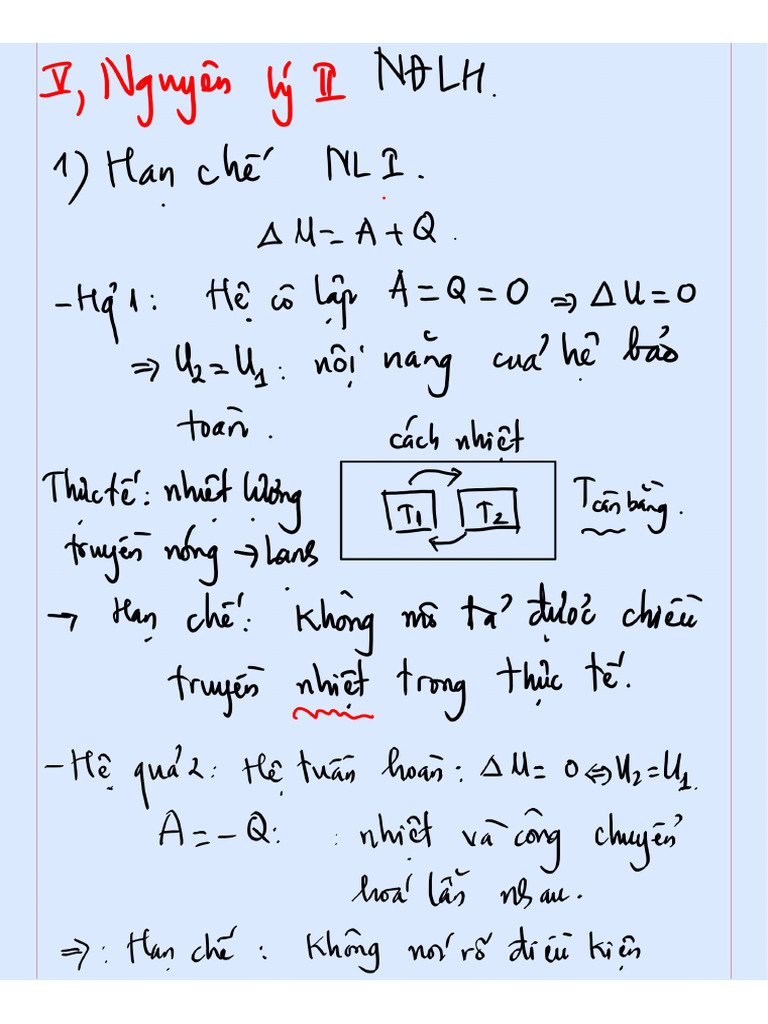 V, Nguyên lý II NĐLH.
1) Hạn chế NL I.
ΔU = A + Q.
- Hq̉ 1: Hệ cô lập A = Q = 0 => ΔU = 0
=> U₂ = U₁ : nội năng của hệ bảo
toàn.
cách nhiệt
Thực tế: nhiệt lượng
T₁ T₂
T cân bằng.
truyền nóng → lạnh
→ Hạn chế: Không mô tả được chiều
truyền nhiệt trong thực tế.
- Hệ quả 2: Hệ tuần hoàn: ΔU = 0 <=> U₂ = U₁.
A = - Q: : nhiệt và công chuyển
hoá lẫn nhau.
=> : Hạn chế : Không nói rõ điều kiện